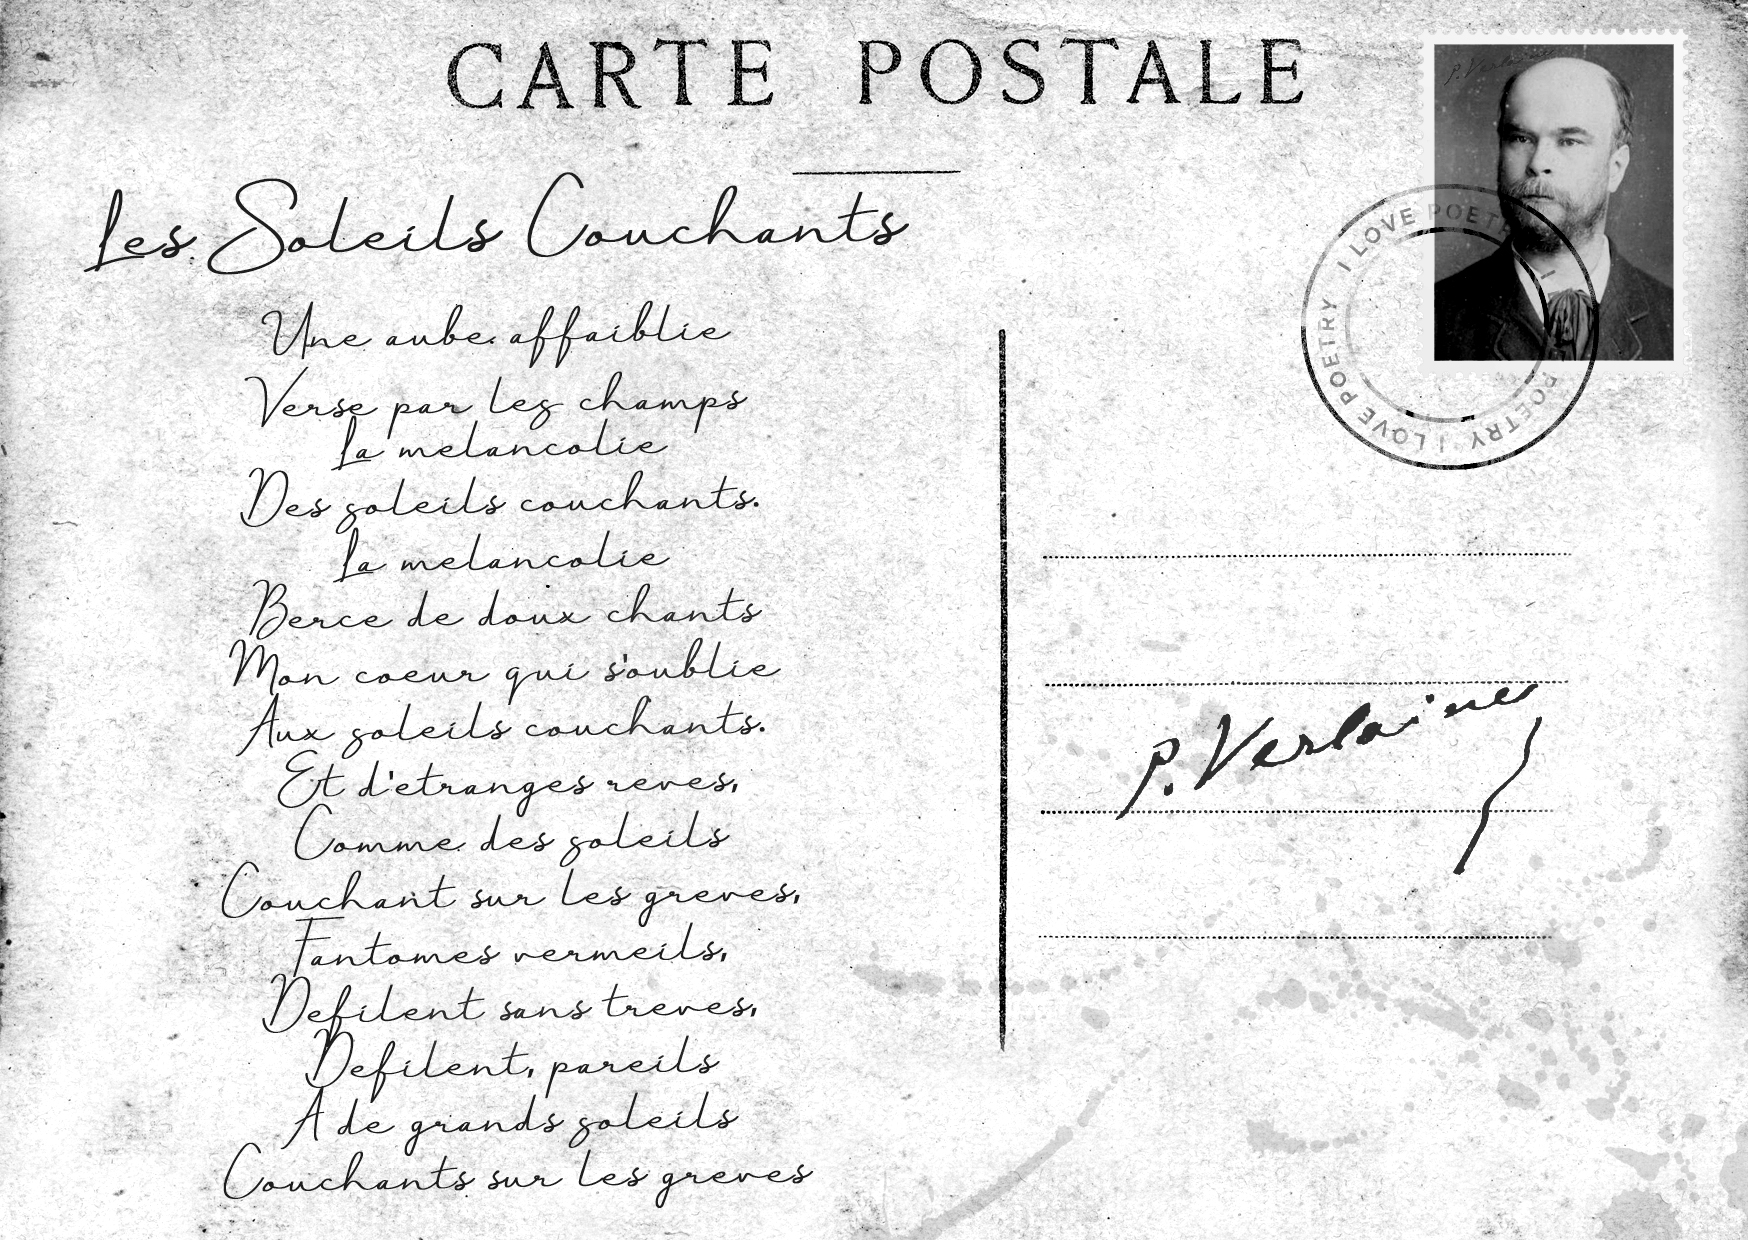 CARTE POSTALE
P. Verlaine
I LOVE POETRY I LOVE POETRY I LOVE POETRY
Les Soleils Couchants
Une aube affaiblie
Verse par les champs
La melancolie
Des soleils couchants.
La melancolie
Berce de doux chants
Mon coeur qui s'oublie
Aux soleils couchants.
Et d'etranges reves,
Comme des soleils
Couchant sur les greves,
Fantomes vermeils,
Defilent sans treves,
Defilent, pareils
A de grands soleils
Couchants sur les greves
P. Verlaine